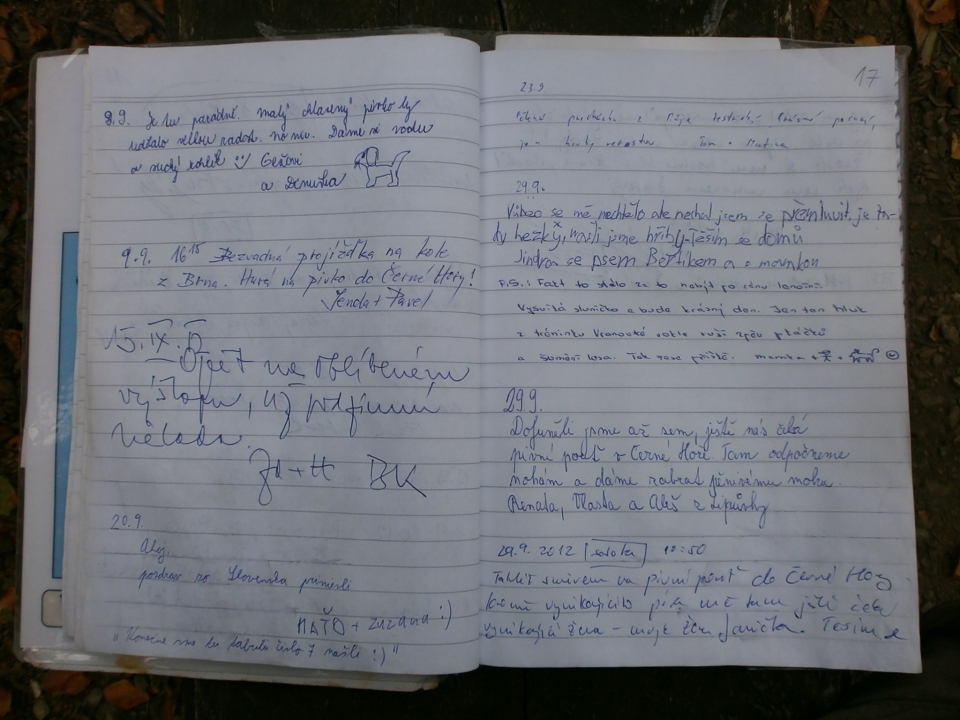 9.9. Je tu parádně. malý chlazený pivko by
udělalo velkou radost. no nic. Dáme si vodu
a suchý rohlík
a Denuška
9.9. 16¹⁵ Bezvadná projížďka na kole
z Brna. Hurá na pivko do Černé Hory!
Jenda + Pavel
15. IX.
Opět na oblíbeném
výstupu, už podzimní
nálada.
BK
20.9.
Ahoj,
pozdrav zo Slovenska priniesli
MAŤO + zuzana :)
"Konečne sme tu tabuľu číslo 7 našli :)"
17
23.9
29.9.
Vůbec se mě nechtělo ale nechal jsem se přemluvit. je to
tady hezký, našli jsme hřiby. Těším se domů
Jindra se psem Bertíkem a s mamkou
P.S.: Fakt to stálo za to nabýt po ránu
Vysvitá sluníčko a bude krásný den. Jen ten hluk
z tréninku ruší zpěv ptáčků
a šumění lesa. Tak zase příště. mamka +
29.9.
Dofuněli jsme až sem, ještě nás čeká
pivní pouť v Černé Hoře. Tam odpočineme
nohám a dáme zabrat pěnivému moku.
Renata, Vlasta a Aleš z Lipůvky
29.9. 2012 sobota 10:50
Taktéž směrem na pivní pouť do Černé Hory
kromě vynikajícího piva mě tam ještě čeká
vynikající žena – moje žena Janička. Těším se